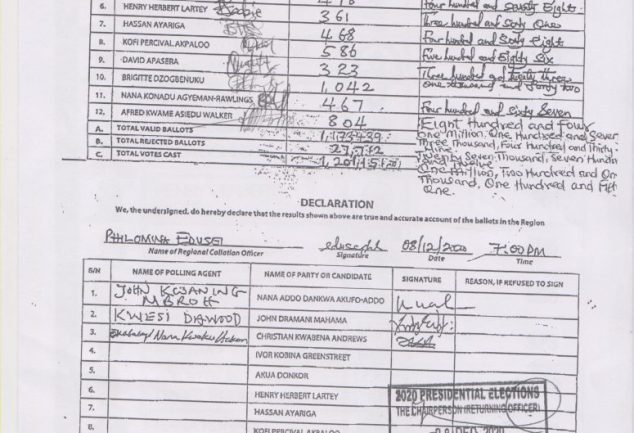 6. HENRY HERBERT LARTEY 361 Three hundred and Sixty One
7. HASSAN AYARIGA 468 Four hundred and Sixty Eight
8. KOFI PERCIVAL AKPALOO 586 Five hundred and Eighty Six
9. DAVID APASERA 323 Three hundred and twenty three
10. BRIGITTE DZOGBENUKU 1,042 One thousand and Forty two
11. NANA KONADU AGYEMAN-RAWLINGS 467 Four hundred and Sixty Seven
12. AFRED KWAME ASIEDU WALKER 804 Eight Hundred and Four
A. TOTAL VALID BALLOTS 1,173,439 One Million, One Hundred and Seven
Three Thousand, Four Hundred and Thirty-
Nine
B. TOTAL REJECTED BALLOTS 27,712 Twenty Seven Thousand, Seven Hundred
and Twelve
C. TOTAL VOTES CAST 1,201,151 One Million, Two Hundred and One
Thousand, One Hundred and Fift
One.
DECLARATION
We, the undersigned, do hereby declare that the results shown above are true and accurate account of the ballots in the Region
PHILOMINA EDUSEI 08/12/2020 7:00PM
Name of Regional Collation Officer Signature Date Time
S/N NAME OF POLLING AGENT NAME OF PARTY OR CANDIDATE SIGNATURE REASON, IF REFUSED TO SIGN
1. JOHN NANA ADDO DANKWA AKUFO-ADDO
2. KWESI DAWOOD JOHN DRAMANI MAHAMA
3. Nana Kwaku CHRISTIAN KWABENA ANDREWS
4. IVOR KOBINA GREENSTREET
5. AKUA DONKOR
6. HENRY HERBERT LARTEY
7. HASSAN AYARIGA
8. KOFI PERCIVAL AKPALOO
2020 PRESIDENTIAL ELECTIONS
THE CHAIRPERSON (RETURNING OFFICER)
DEC 2020